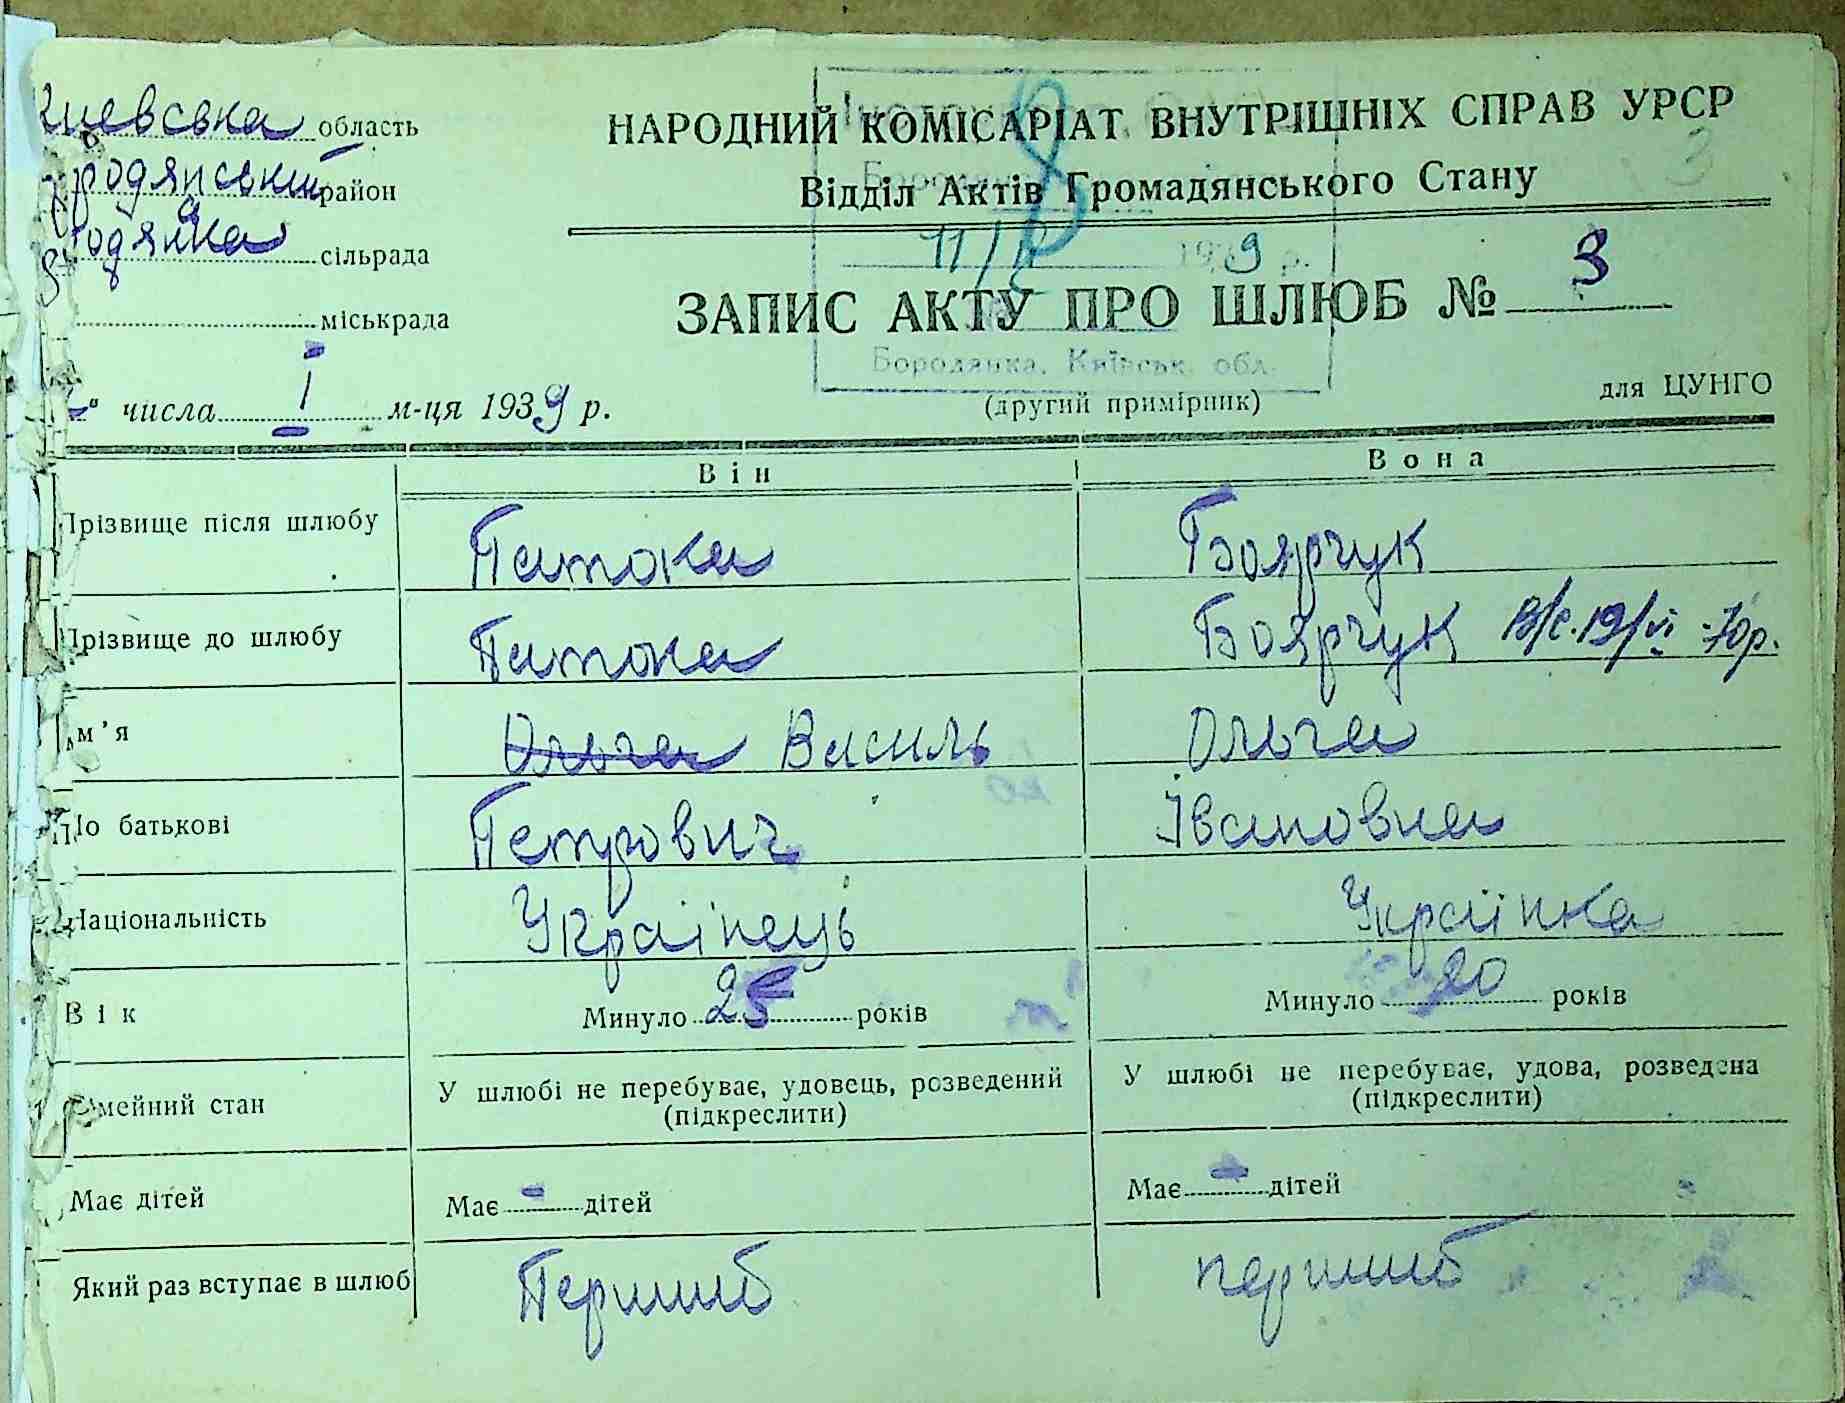 Киевська область
Бородянський район
Бородянка сільрада
міськрада
НАРОДНИЙ КОМІСАРІАТ ВНУТРІШНІХ СПРАВ УРСР
Відділ Актів Громадянського Стану
8
3
11/ 1939 р.
ЗАПИС АКТУ ПРО ШЛЮБ № 3
Бородянка, Київськ. обл.
числа І м-ця 1939 р.
(другий примірник)
для ЦУНГО
Він Вона
Прізвище після шлюбу Патока Боярчук
Прізвище до шлюбу Патока Боярчук В/с. 19/VI -70р.
Ім'я Ольга Василь Ольга
По батькові Петрович Івановна
Національність Українець Українка
Вік Минуло 25 років Минуло 20 років
Сімейний стан У шлюбі не перебуває, удовець, розведений (підкреслити) У шлюбі не перебуває, удова, розведена (підкреслити)
Має дітей Має - дітей Має - дітей
Який раз вступає в шлюб Перший перший